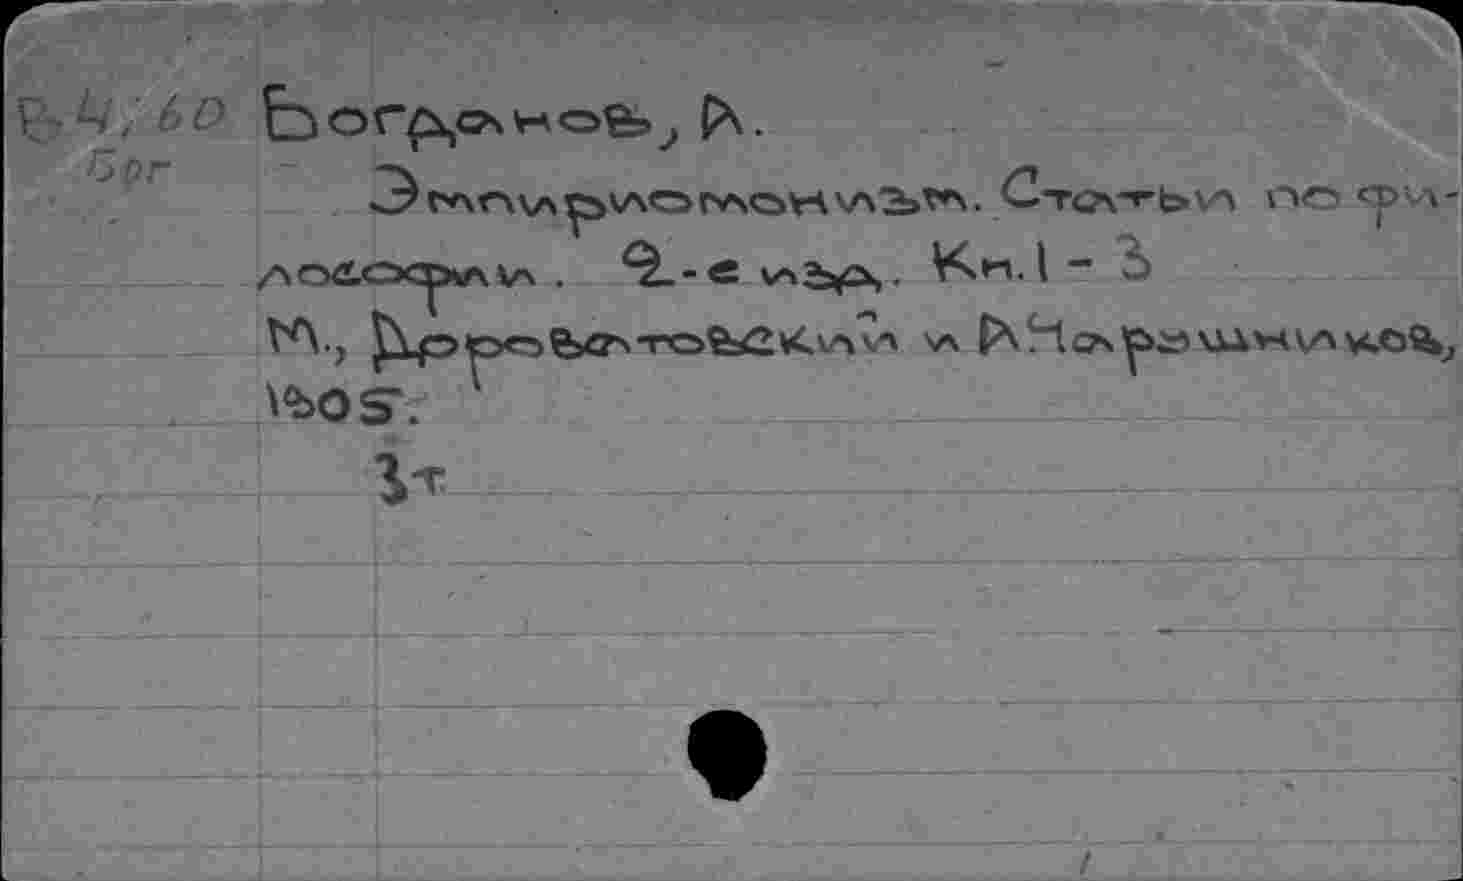 В 4; 60 Богданов, А.
Бог Эмпириомонизм. Статьи по фи-
лософии. 2-е изд. Кн.1 - 3
М., Дороватовский и А.Чарушников,
1905.
3т